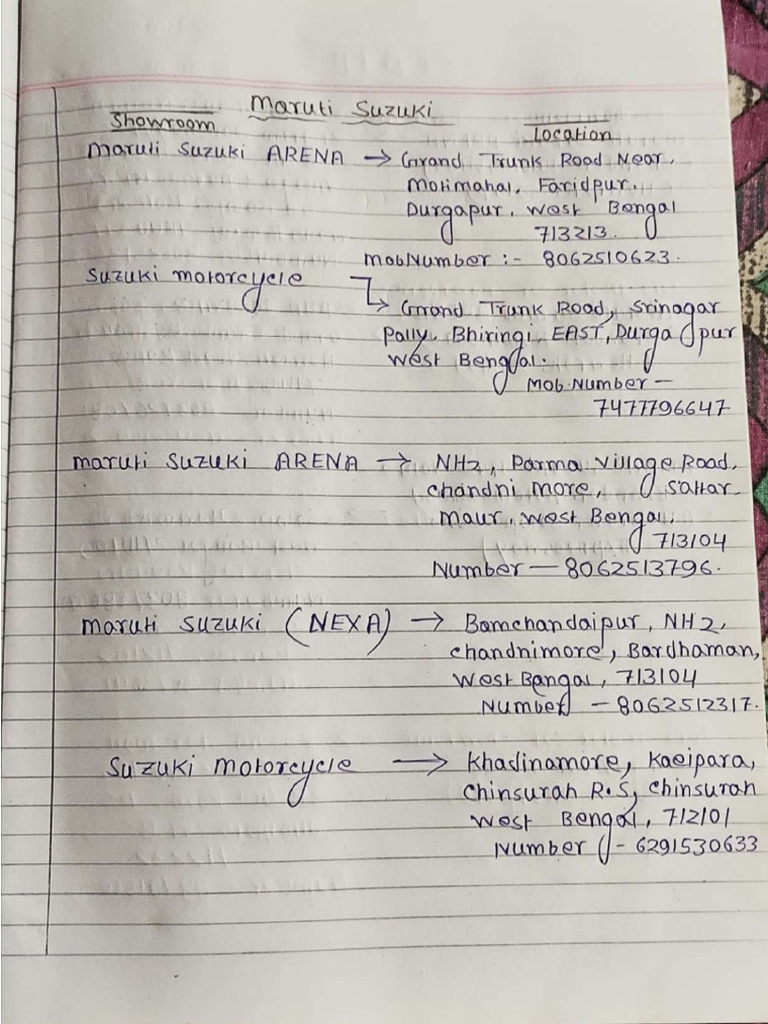 Maruti Suzuki
Showroom
Location
Maruti Suzuki ARENA → Grand Trunk Road Near,
Motimahal, Faridpur.
Durgapur, West Bengal
713213.
Mob Number :- 8062510623.
Suzuki motorcycle
→ Grand Trunk Road, Srinagar
Pally, Bhiringi, EAST, Durgapur
West Bengal.
Mob. Number -
7477796647
maruti suzuki ARENA → NH2, Parma Village Road,
chandni more, Sattar
maur, West Bengal,
713104
Number - 8062513796.
maruti suzuki (NEXA) → Bamchandaipur, NH2,
chandnimore, Bardhaman,
West Bangal, 713104
Number - 8062512317.
Suzuki motorcycle → Khadinamore, Kaeipara,
Chinsurah R.S, Chinsurah
West Bengal, 712101
Number - 6291530633